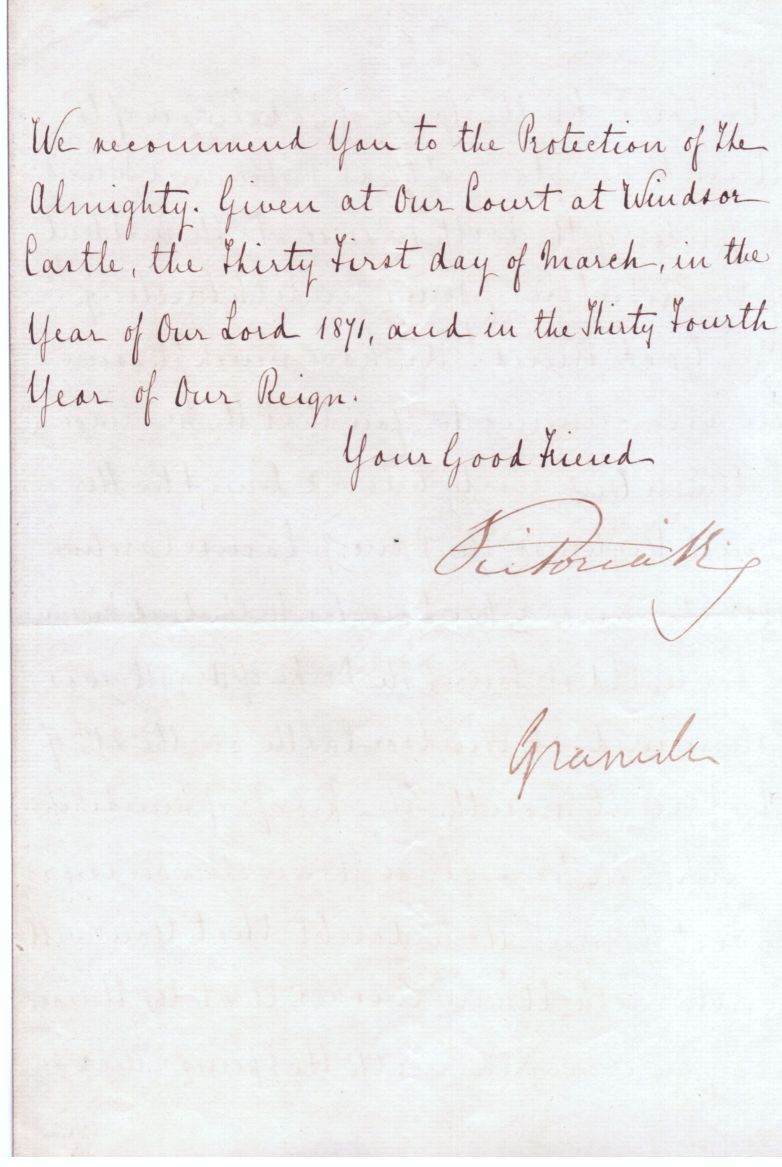 We recommend You to the Protection of The
Almighty. Given at Our Court at Windsor
Castle, the Thirty First day of March, in the
Year of Our Lord 1871, and in the Thirty Fourth
Year of Our Reign.
Your Good Friend
Victoria R
Granville